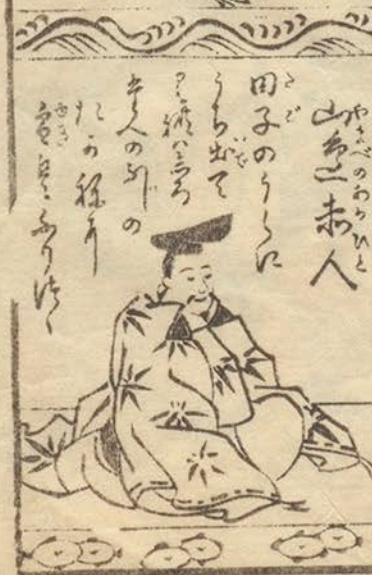 山邊赤人
やまべのあかひと
田子のうらに
うち出て
ミれハしろ
妙のふじの
たかねに
雪ハふりつゝ